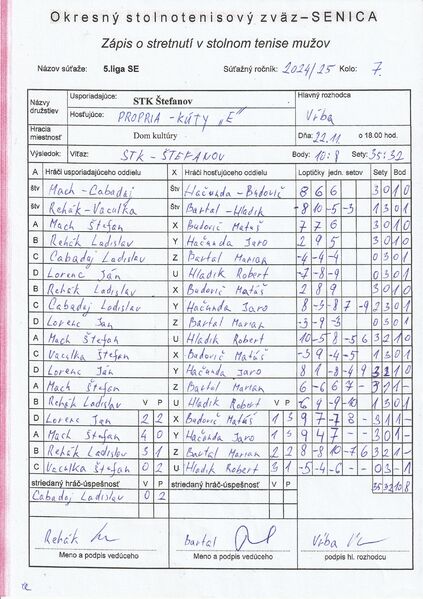 Okresný stolnotenisový zväz – SENICA
Zápis o stretnutí v stolnom tenise mužov
Názov súťaže: 5.liga SE Súťažný ročník: 2024/25 Kolo: 7.
Názvy družstiev Usporiadajúce: STK Štefanov Hlavný rozhodca
Hosťujúce: PROPRIA - KÚTY „E" Vŕba
Hracia miestnosť Dom kultúry Dňa: 22.11. o 18.00 hod.
Výsledok: Víťaz: STK - ŠTEFANOV Body: 10:8 Sety: 35:32
A Hráči usporiadajúceho oddielu X Hráči hosťujúceho oddielu Loptičky jedn. setov Sety Bod
štv Mach - Cabadaj štv Hačunda - Budovič 8 6 6 3 0 1 0
štv Rehák - Vaculka štv Bartal - Hladík -8 10 -5 -3 1 3 0 1
A Mach Štefan X Budovič Matúš 7 7 6 3 0 1 0
B Rehák Ladislav Y Hačunda Jaro 2 9 5 3 0 1 0
C Cabadaj Ladislav Z Bartal Marian -4 -4 -4 0 3 0 1
D Lorenc Ján U Hladík Robert -7 -8 -9 0 3 0 1
B Rehák Ladislav X Budovič Matúš 2 8 9 3 0 1 0
C Cabadaj Ladislav Y Hačunda Jaro 8 -3 -8 7 -9 2 3 0 1
D Lorenc Jan Z Bartal Marian -3 -9 -3 0 3 0 1
A Mach Štefan U Hladik Robert 10 -5 8 -5 6 3 2 1 0
C Vaculka Štefan X Budovič Matúš -3 9 -4 -5 1 3 0 1
D Lorenc Ján Y Hačunda Jaro 8 1 -8 -4 9 3 2 1 0
A Mach Štefan Z Bartal Marian
B Rehák Ladislav V P U Hladik Robert V P
D Lorenc Jan 2 2 X Budovič Matúš 1 3
A Mach Štefan 4 0 Y Hačunda Jaro 1 3
B Rehák Ladislav 3 1 Z Bartal Marian 2 2
C Vaculka Štefan 0 2 U Hladik Robert 3 1 -5 -4 -6 0 3 - 1
striedaný hráč-úspešnosť V P striedaný hráč-úspešnosť V P 35 32 10 8
Cabadaj Ladislav 0 2
Rehák Bartal Vŕba
Meno a podpis vedúceho Meno a podpis vedúceho podpis hl. rozhodcu